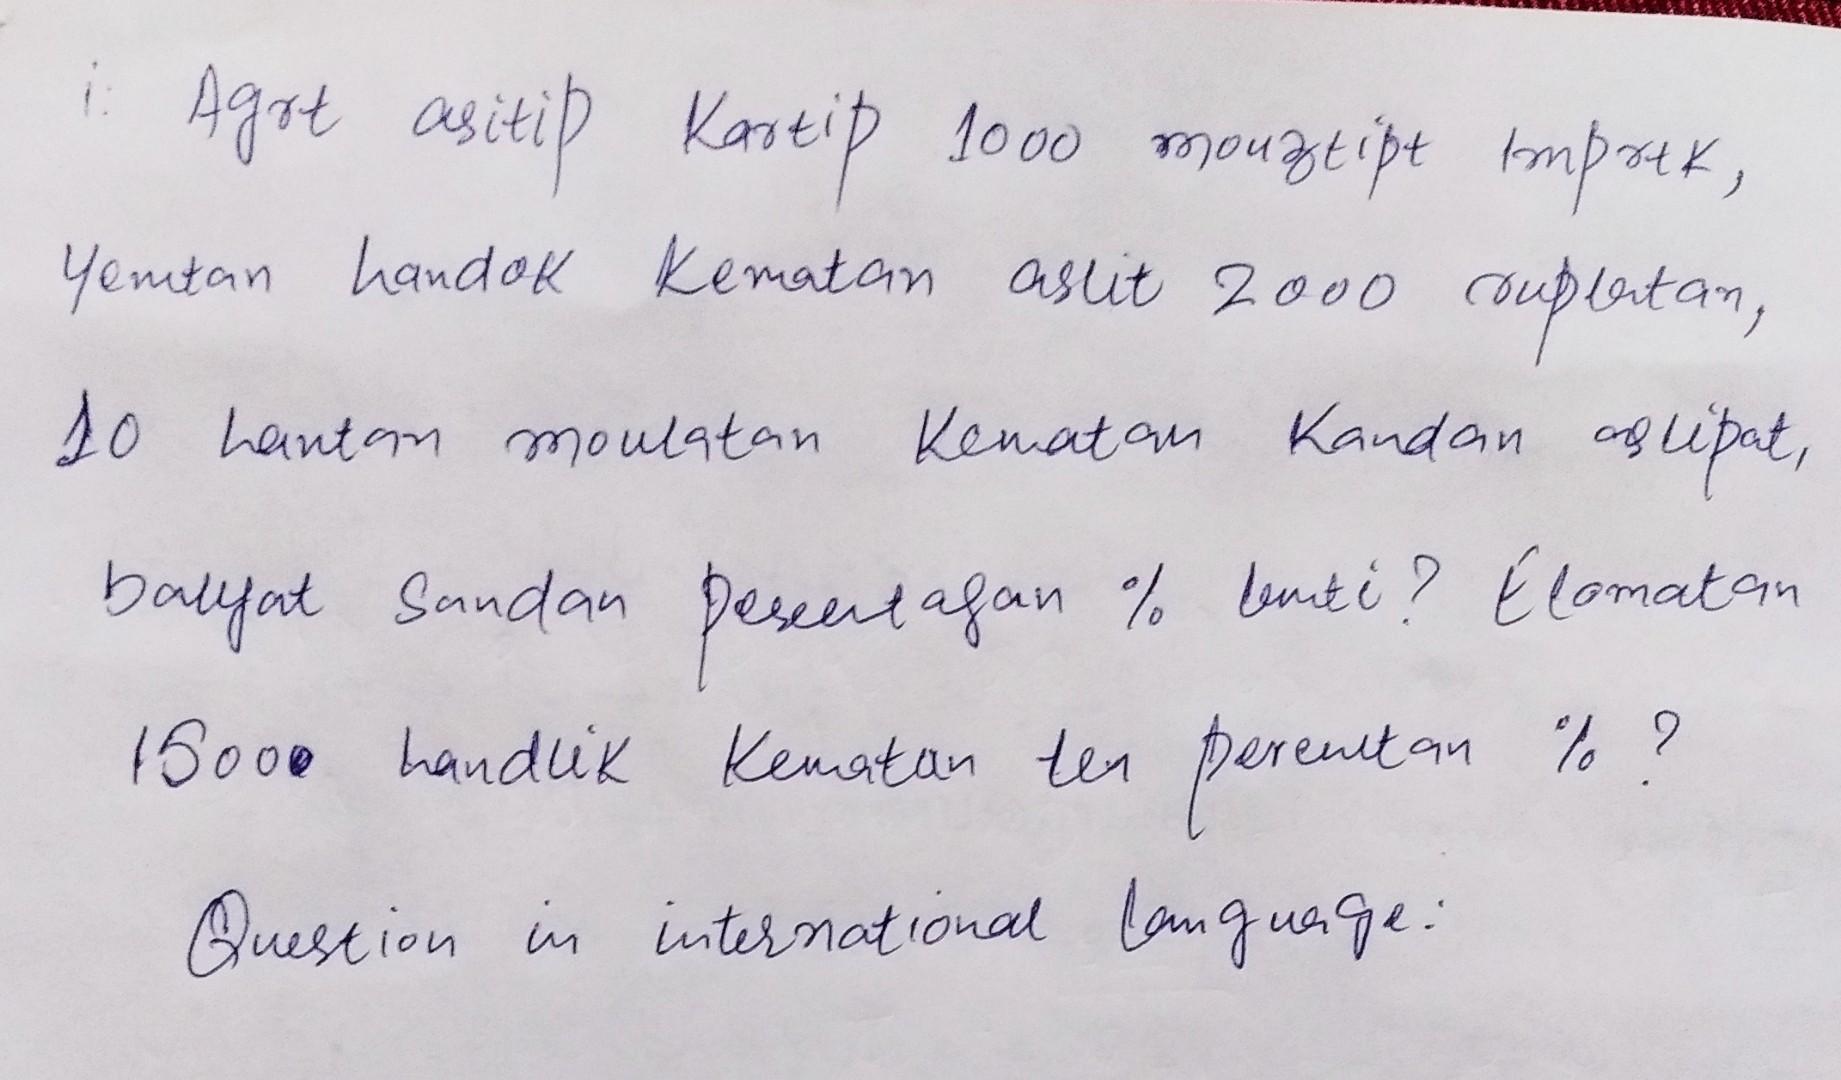 i. Agrt asitip Kartip 1000 mouztipt tmprtk,
Yemtan handok Kematan aslit 2000 ruplatan,
10 hantan moulatan Kematan Kandan aslipat,
balyat Sandan % ? Elomatan
15000 handlik Kematan ten perentan % ?
Question in international language: